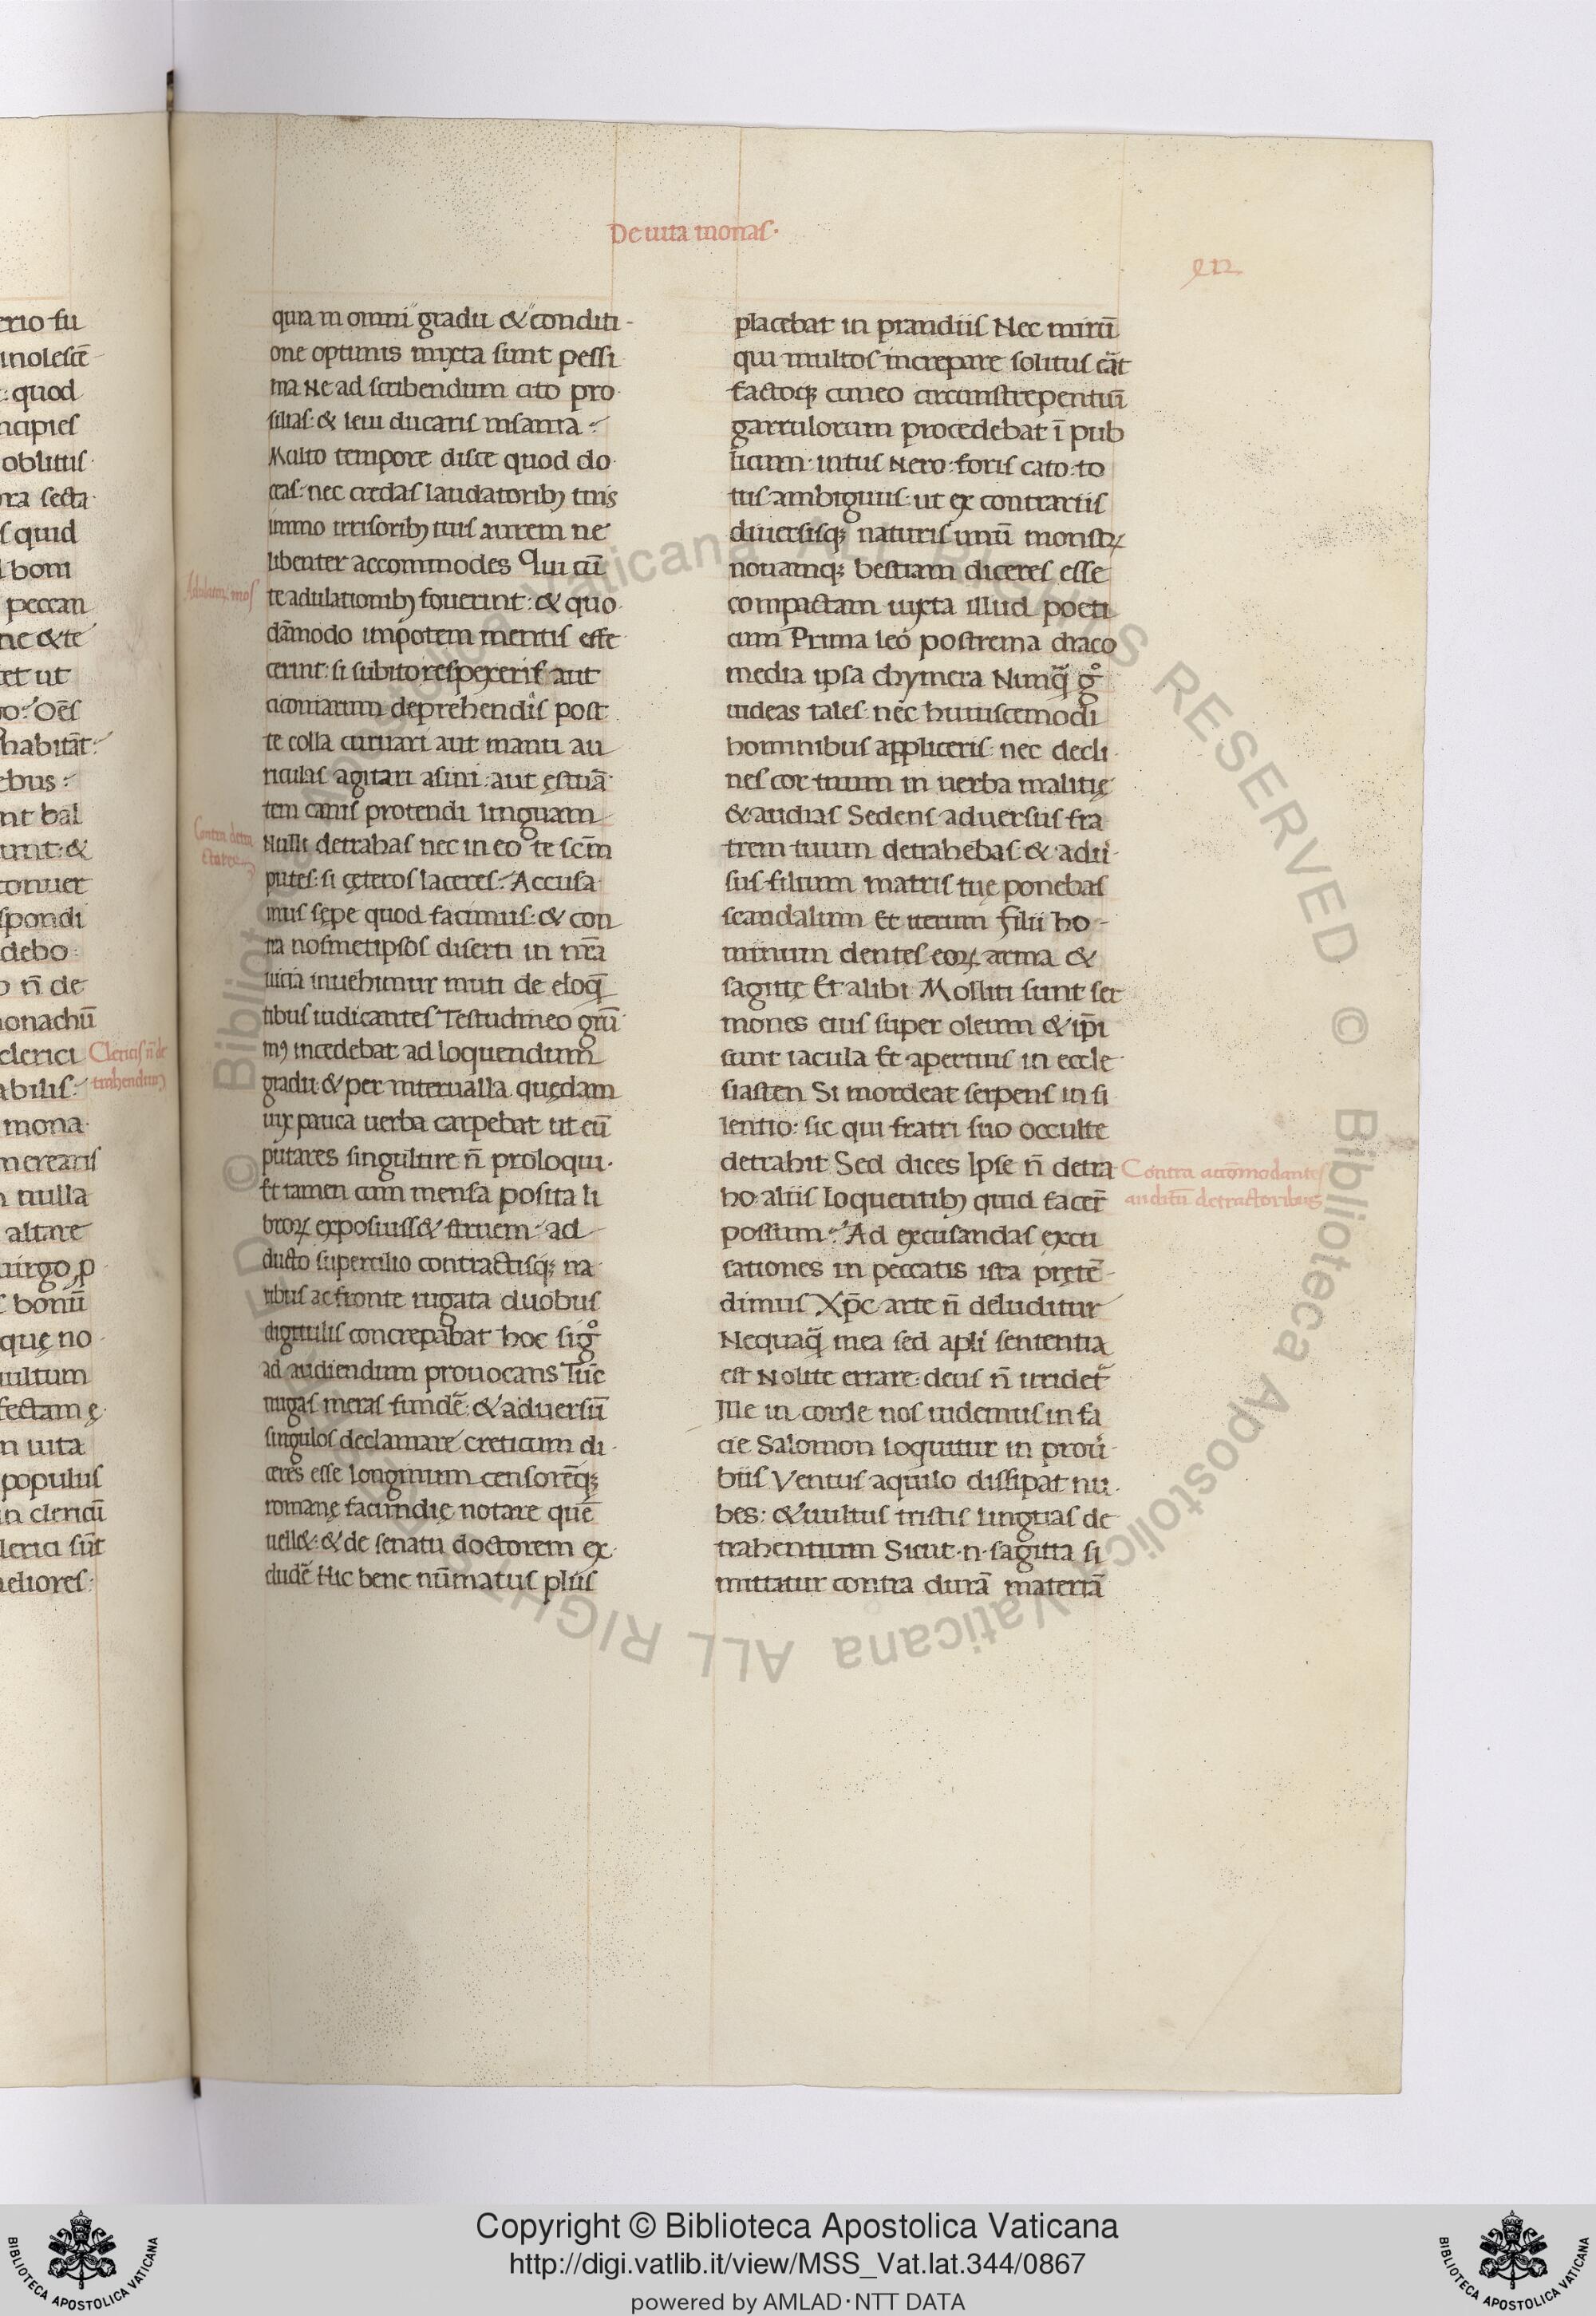 De uita monas·
erio fu
inolescē
: quod
ncipies
oblitus
ora secta
s quid
l bom
peccan
ne & te
et ut
o: Oēs
habitāt:
ebus:
nt bal
unt: &
conuer
spondi
debo
o n̄ de
monachū
clerici
abilis:
mona
merearis
nulla
altare
uirgo p
s bonū
quę no
uultum
fectam ę
n uita
populus
in clericū
lerici sūt
eliores:
Clericis n̄ de
trahendum
quia in omni gradu & conditi-
one optimis mixta sunt pessi
ma Ne ad scribendum cito pro
silias: & leui ducaris insania:
Multo tempore disce quod do
ceas: nec credas laudatorib; tuis
immo irrisorib; tuis aurem ne
libenter accommodes Qui cū
te adulationib; fouerint: & quo
dāmodo impotem mentis effe
cerint: si subito respexeris aut
ciconiarum deprehendis post
te colla curuari aut manu au
riculas agitari asini: aut ęstuā
tem canis protendi linguam
Nulli detrahas nec in eo te scm̄
putes: si cęteros laceres: Accusa
mus sępe quod facimus: & con
tra nosmetipsos diserti in nr̄a
uicia inuehimur muti de eloq̄
tibus iudicantes Testudineo grū
niꝰ incedebat ad loquendum
gradu: & per interualla quędam
uix pauca uerba carpebat ut eū
putares singultire n̄ proloqui·
Et tamen cum mensa posita li
broꝝ exposuiss& struem: ad
ducto supercilio contractisq; na
ribus ac fronte rugata duobus
digitulis concrepabat hoc sigͦ
ad audiendum prouocans Tūc
nugas meras fundē: & aduersū
singulos declamare creticum di
ceres esse longinum censorēq;
romanę facundię notare quē
uell&: & de senatu doctorem ex
cludē Hic bene nūmatus plus
Adulatoꝝ mos
Contra detra
placebat in prandiis Nec mirū
qui multos increpare solitus erāt
factoq; cuneo circunstrepentiū
garrulorum procedebat ī pub
licum: intus Nero: foris cato: to
tus ambiguus: ut ex contrariis
diuersisq; naturis unū monstꝝ
nouamq; bestiam diceres esse
compactam iuxta illud poeti
cum Prima leo postrema draco
media ipsa chymera Nunq̄ gͦ
uideas tales: nec huiuscemodi
hominibus appliceris: nec decli
nes cor tuum in uerba malitię
& audias Sedens aduersus fra
trem tuum detrahebas: & adū
sus filium matris tuę ponebas
scandalum Et iterum Filii ho-
minum dentes eoꝝ arma &
sagittę Et alibi Molliti sunt ser
mones eius super oleum & ip̄i
sunt iacula Et apertius in eccle
siasten Si mordeat serpens in si
lentio: sic qui fratri suo occulte
detrahit Sed dices Ipse n̄ detra
ho: aliis loquentib; quid facer̄
possum: Ad excusandas excu
sationes in peccatis ista prętē-
dimus Xp̄c arte n̄ deluditur
Nequaq̄ mea sed apli sententia
est Nolite errare: deus n̄ irridet̄
Ille in corde nos uidemus in fa
cie Salomon loquitur in prou̅
biis Ventus aquilo dissipat nu
bes: & uultus tristis linguas de
trahentium Sicut·n·sagitta si
mittatur contra durā materiā
Contra accōmodantes
auditū detractoribus
© Biblioteca Apostolica Vaticana ALL RIGHTS RESERVED
© Biblioteca Apostolica Vaticana ALL RIGHTS RESERVED
Copyright © Biblioteca Apostolica Vaticana
http://digi.vatlib.it/view/MSS_Vat.lat.344/0867
powered by AMLAD·NTT DATA
BIBLIOTECA APOSTOLICA VATICANA
BIBLIOTECA APOSTOLICA VATICANA